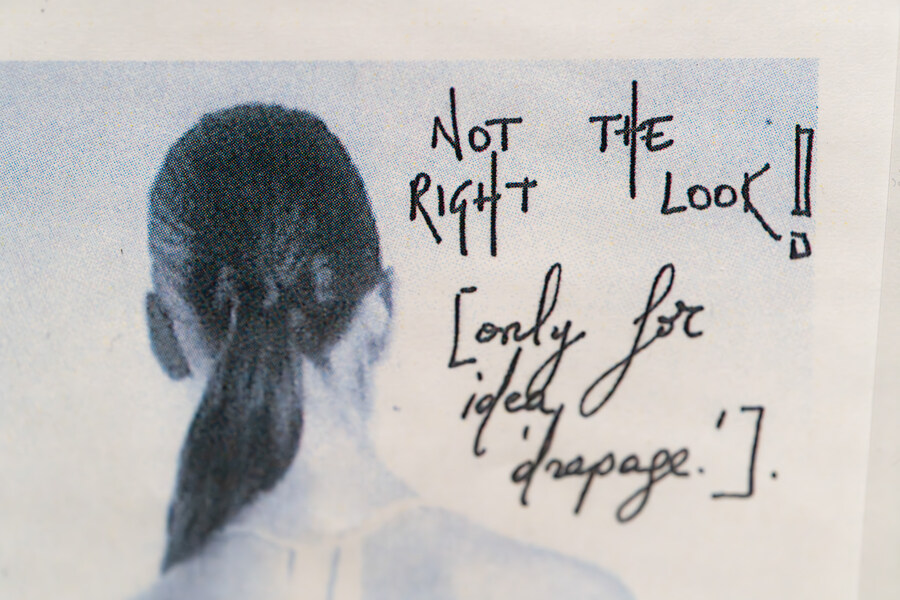 NOT THE
RIGHT LOOK!
[only for
idea,
'drapage.'].